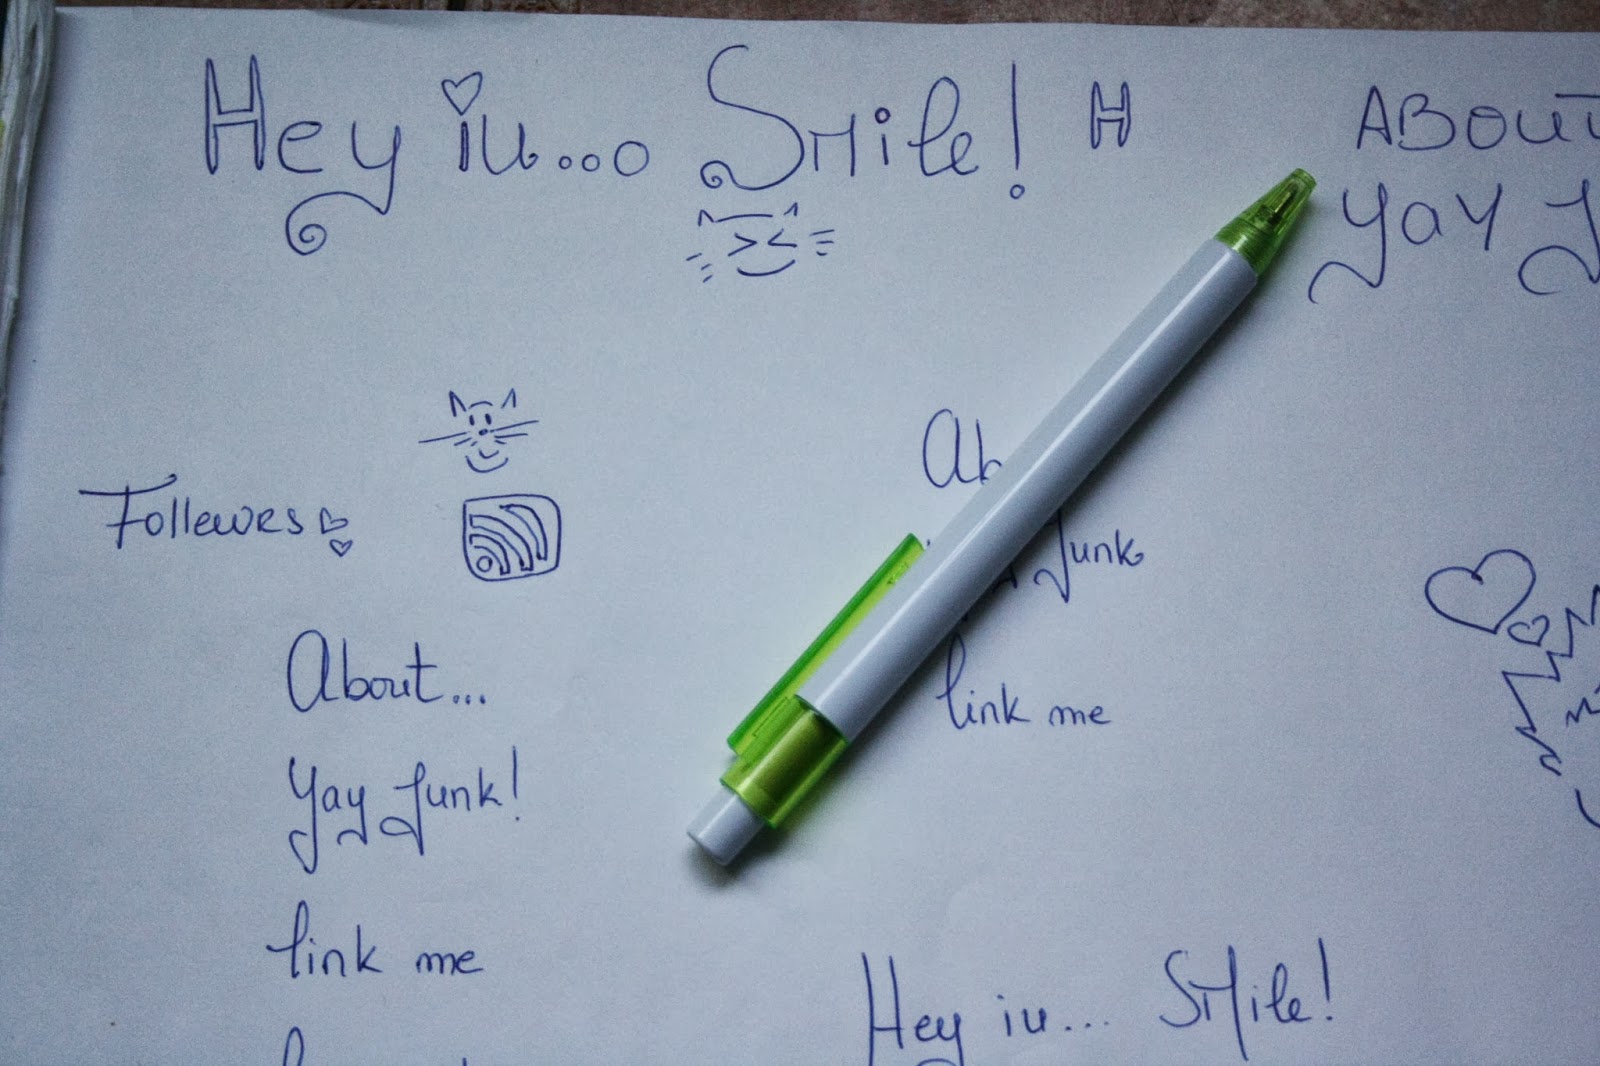 Hey iu...o Smile! H
ABOUT
Yay J
Follewrs
About...
Yay Junk!
link me
Ab
Junk
link me
Hey iu... SMile!